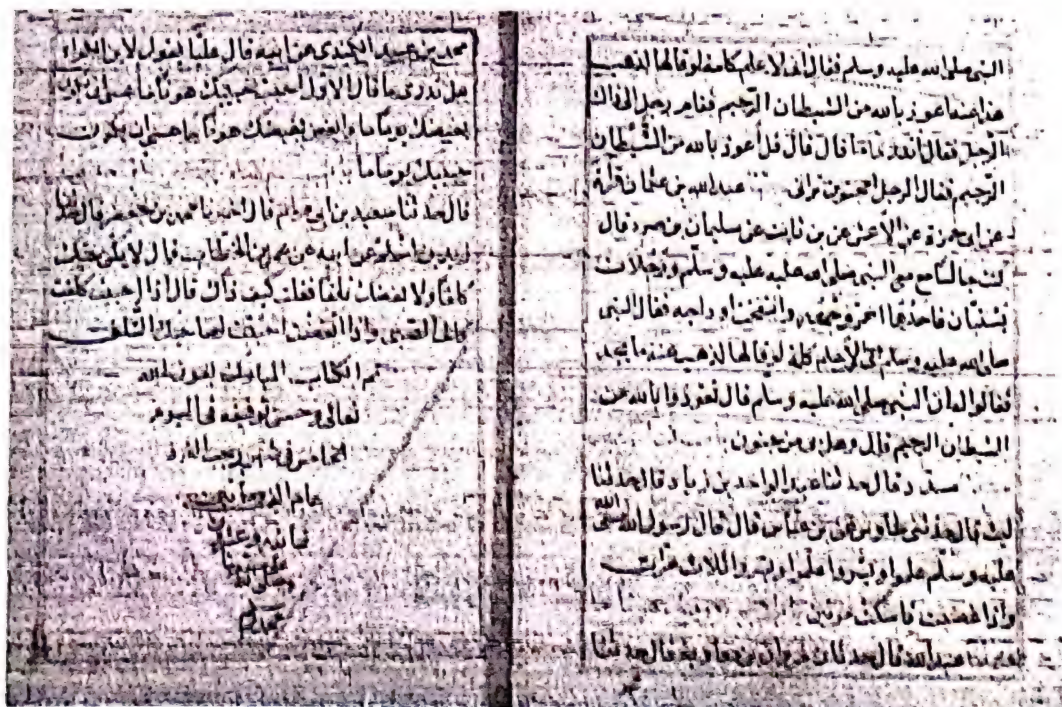 النبي صلى الله عليه وسلم فقال انى لاعلم كلمة لو قالها لذهب
هذا عنه اعوذ بالله من الشيطان الرجيم فقام رجل الى ذاك
الرجل فقال اتدرى ما قال قال قل اعوذ بالله من الشيطان
الرجيم فقال الرجل امجنون ترانى عبد الله بن عثمان
عن ابى حمزة عن الاعمش عن بن ثابت عن سليمان بن صرد قال
كنت جالسا مع النبي صلى الله عليه وسلم ورجلان
يستبان فاحدهما احمر وجهه وانتفخت اوداجه فقال النبى
صلى الله عليه وسلم انى لاعلم كلمة لو قالها لذهب عنه ما يجد
فقالوا له ان النبي صلى الله عليه وسلم قال تعوذ بالله من
الشيطان الرجيم قال وهل بى من جنون
مسدد قال حدثنا عبد الواحد بن زياد قال حدثنا
ليث قال حدثنى طاوس عن بن عباس قال قال رسول الله صلى الله
عليه وسلم علموا ويسروا علموا ويسروا ثلاث مرات
واذا غضبت فاسكت مرتين
عبد الله قال حدثنا مروان بن معاوية قال حدثنا
محمد بن عبيد الكندى عن ابيه قال عليا يقول لابن الكواء
هل تدرى ما قال الاول احبب حبيبك هونا ما عسى ان يكون
بغيضك يوما ما وابغض بغيضك هونا ما عسى ان يكون
حبيبك يوما ما
قال حدثنا سعيد بن ابى مريم قال اخبرنا محمد بن جعفر قال حدثنا
زيد بن اسلم عن ابيه عن عمر بن الخطاب قال لا يكن حبك
كلفا ولا بغضك تلفا فقلت كيف ذاك قال اذا احببت كلفت
كلف الصبى واذا ابغضت احببت لصاحبك التلف
تم الكتاب المبارك بعون الله
تعالى وحسن توفيقه فى اليوم
الخامس فى شهر رجب الفرد
عام الف ومائتين